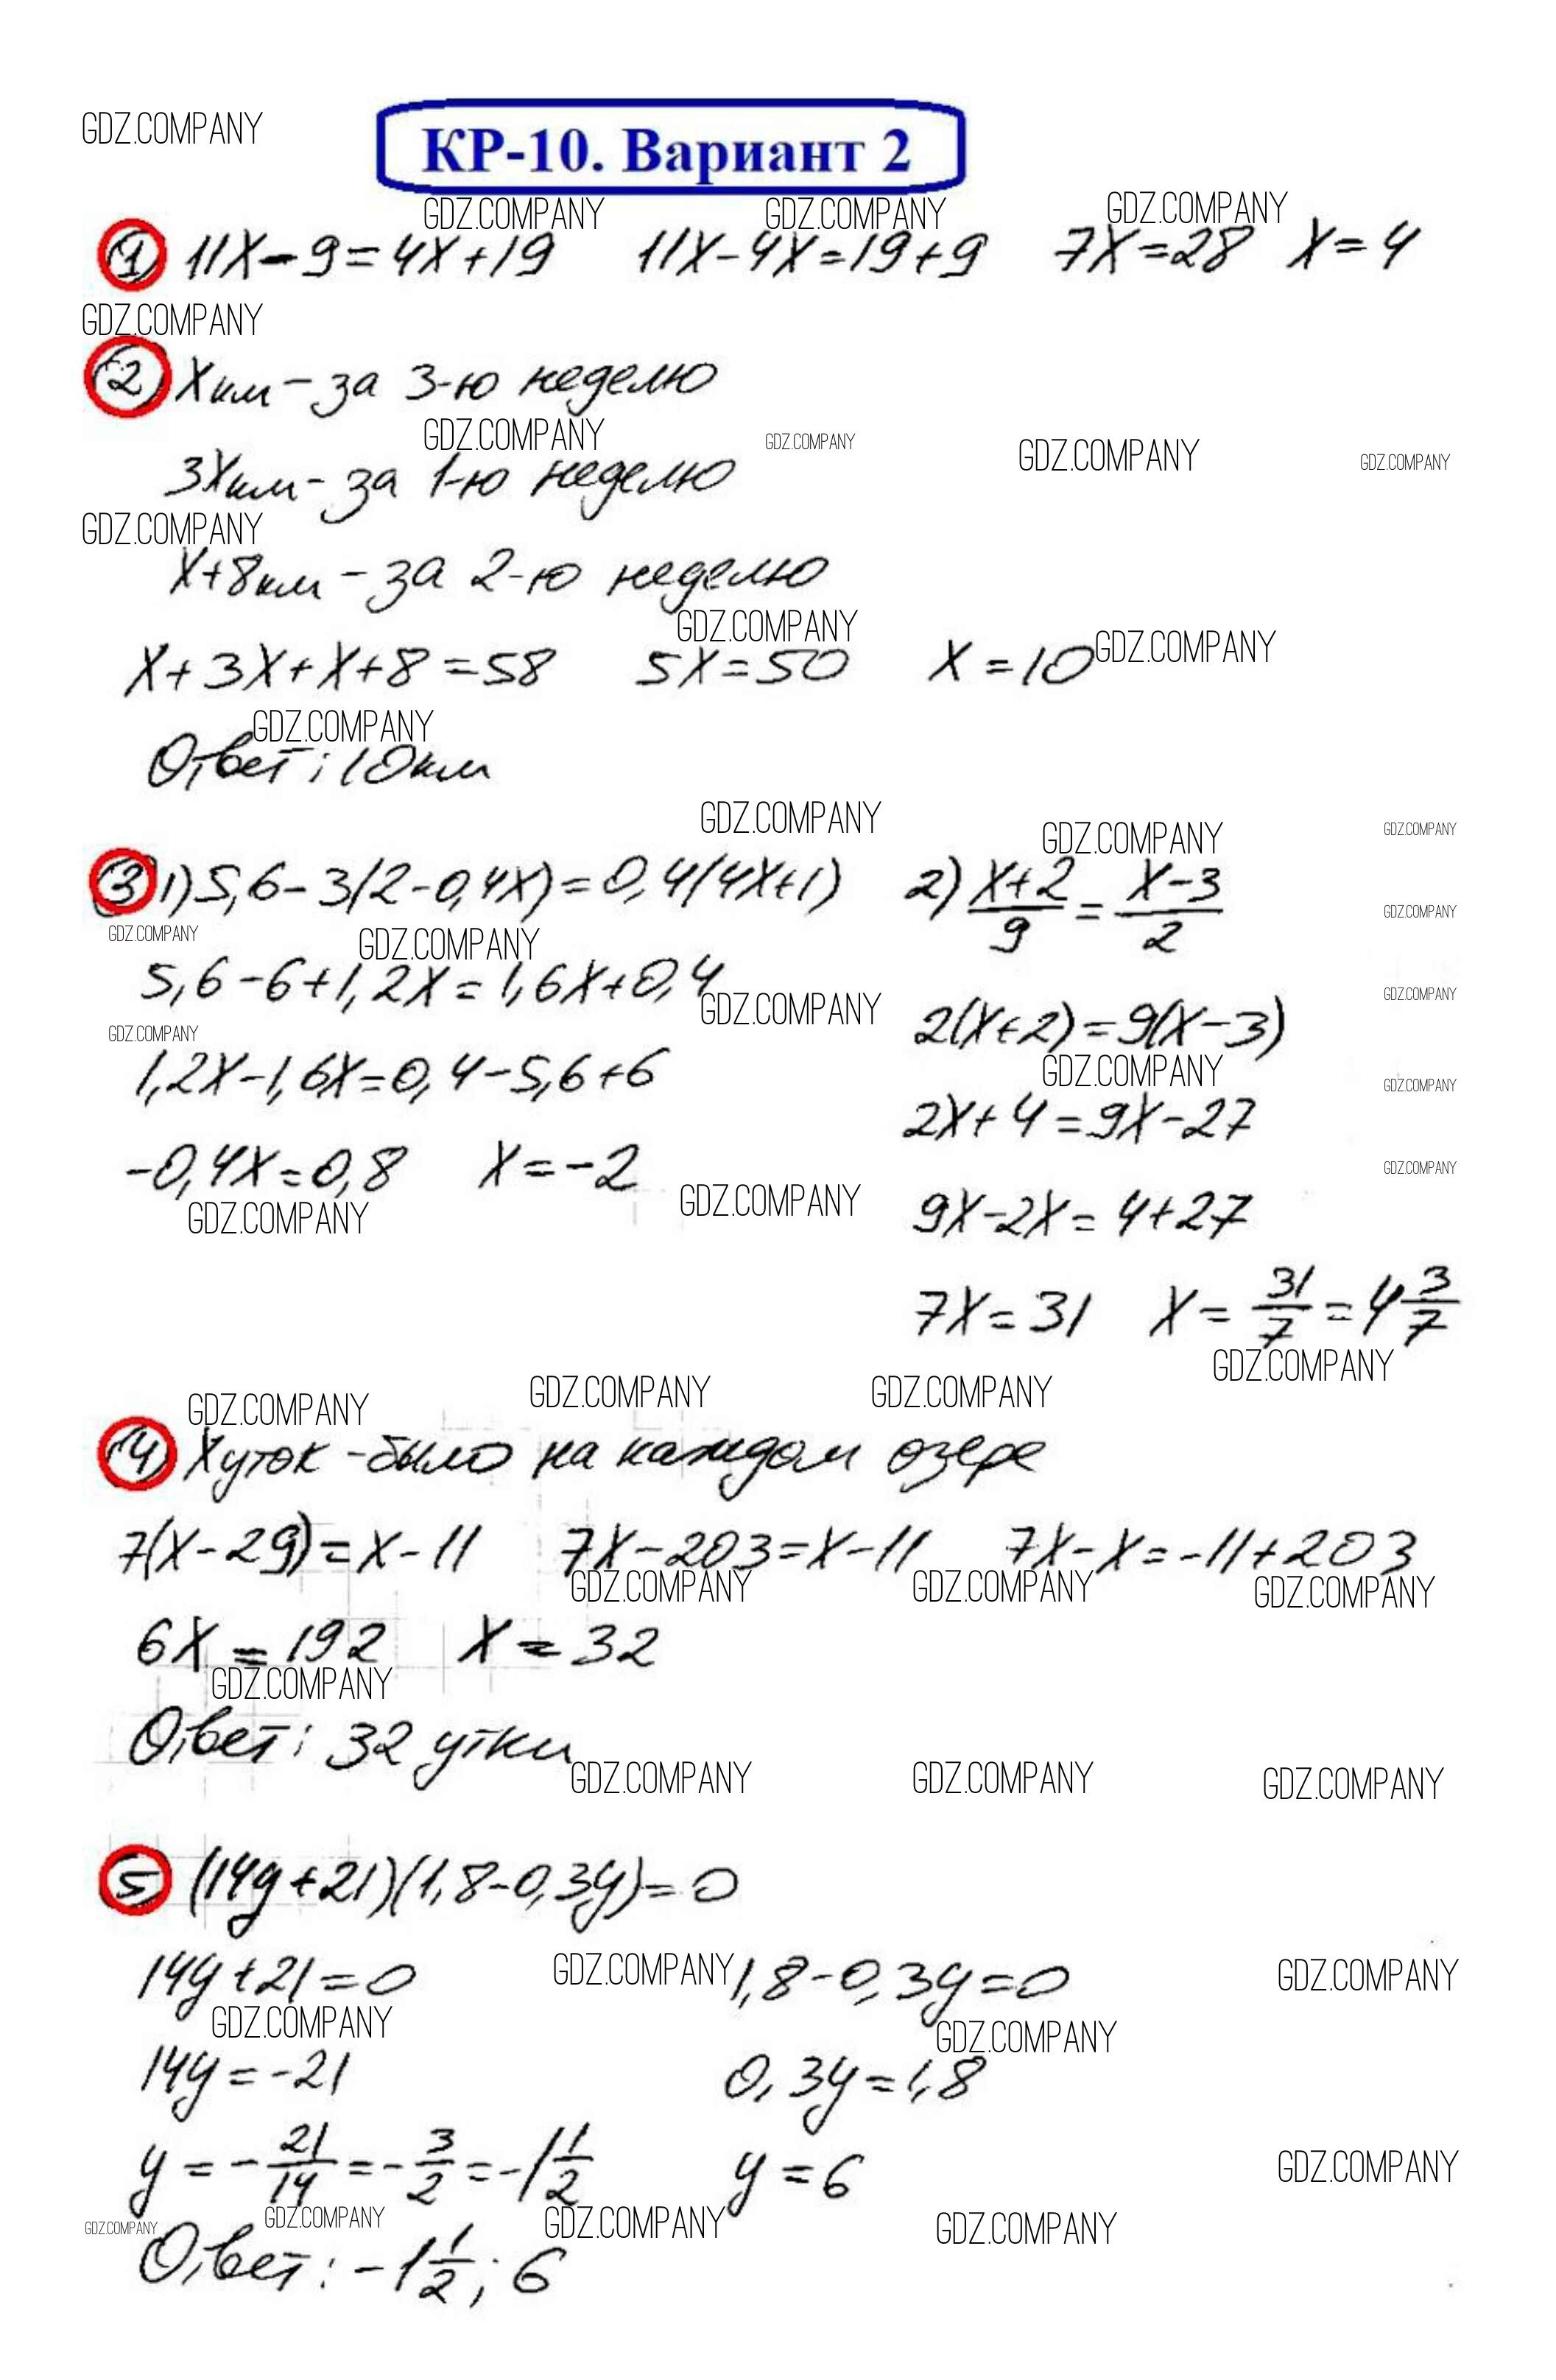 GDZ.COMPANY
КР-10. Вариант 2
GDZ.COMPANY GDZ.COMPANY GDZ.COMPANY
1) 11x-9=4x+19 11x-4x=19+9 7x=28 x=4
GDZ.COMPANY
2) x км - за 3-ю неделю
GDZ.COMPANY GDZ.COMPANY GDZ.COMPANY GDZ.COMPANY
3x км - за 1-ю неделю
GDZ.COMPANY
x+8 км - за 2-ю неделю
GDZ.COMPANY GDZ.COMPANY
x+3x+x+8=58 5x=50 x=10
GDZ.COMPANY
Ответ: 10 км
GDZ.COMPANY GDZ.COMPANY GDZ.COMPANY
3) 1) 5,6-3(2-0,4x)=0,4(4x+1) 2) (x+2)/9=(x-3)/2
GDZ.COMPANY GDZ.COMPANY GDZ.COMPANY
5,6-6+1,2x=1,6x+0,4
GDZ.COMPANY GDZ.COMPANY
2(x+2)=9(x-3)
GDZ.COMPANY GDZ.COMPANY GDZ.COMPANY
1,2x-1,6x=0,4-5,6+6
2x+4=9x-27
-0,4x=0,8 x=-2
GDZ.COMPANY GDZ.COMPANY GDZ.COMPANY
9x-2x=4+27
7x=31 x=31/7=4 3/7
GDZ.COMPANY
GDZ.COMPANY GDZ.COMPANY GDZ.COMPANY
4) x уток - было на каждом озере
7(x-29)=x-11 7x-203=x-11 7x-x=-11+203
GDZ.COMPANY GDZ.COMPANY GDZ.COMPANY
6x=192 x=32
GDZ.COMPANY
Ответ: 32 утки
GDZ.COMPANY GDZ.COMPANY GDZ.COMPANY
5) (14y+21)(1,8-0,3y)=0
14y+21=0 GDZ.COMPANY 1,8-0,3y=0 GDZ.COMPANY
GDZ.COMPANY GDZ.COMPANY
14y=-21 0,3y=1,8
y=-21/14=-3/2=-1 1/2 y=6 GDZ.COMPANY
GDZ.COMPANY GDZ.COMPANY GDZ.COMPANY GDZ.COMPANY
Ответ: -1 1/2; 6